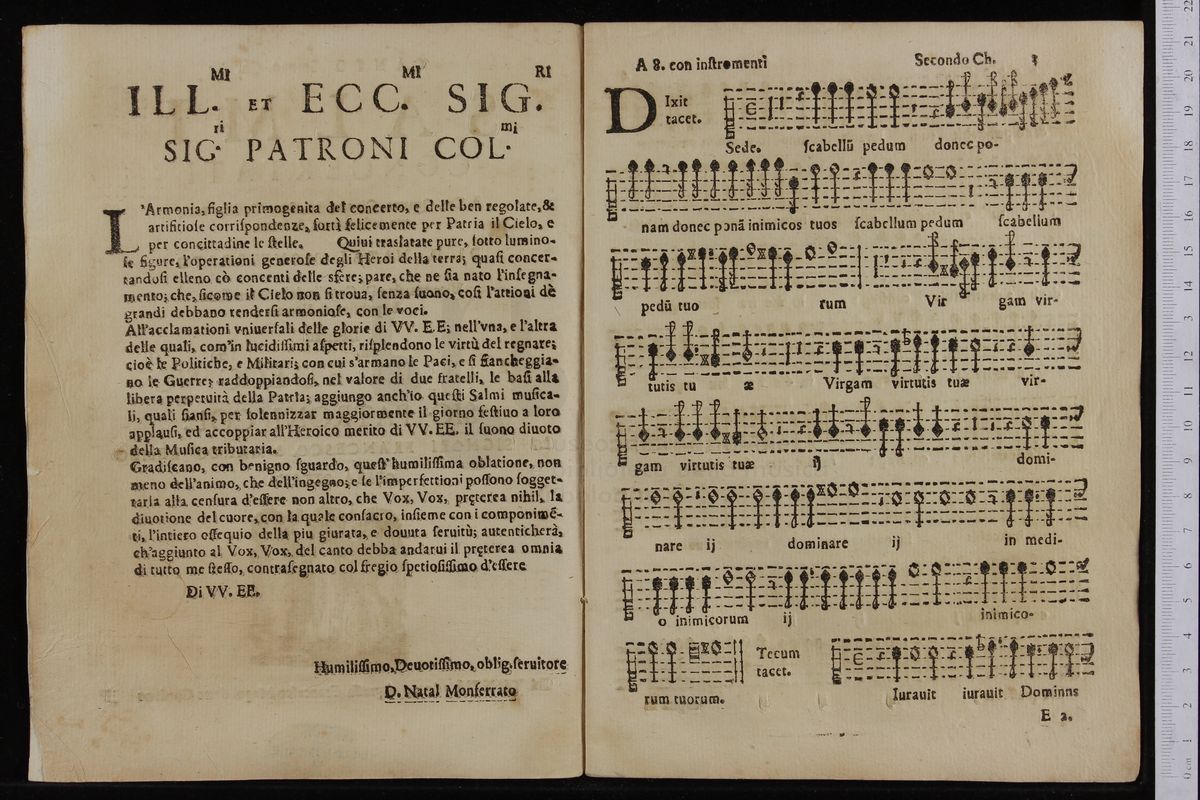 ILL.MI ET ECC.MI SIG.RI
SIG.ri PATRONI COL.mi
L'Armonia, figlia primogenita del concerto, e delle ben regolate, &
artificiose corrispondenze, sortì felicemente per Patria il Cielo, e
per concittadine le stelle. Quiui traslatate pure, sotto lumino-
se figure, l'operationi generose degli Heroi della terra; quasi concer-
tandosi elleno cō concenti delle sfere; pare, che ne sia nato l'insegna-
mento; che, sicome il Cielo non si troua, senza suono, così l'attioni dē
grandi debbano rendersi armoniose, con le voci.
All'acclamationi vniuersali delle glorie di VV. EE; nell'vna, e l'altra
delle quali, com'in lucidissimi aspetti, risplendono le virtù del regnare;
cioè le Politiche, e Militari; con cui s'armano le Paci, e si fiancheggia-
no le Guerre; raddoppiandosi, nel valore di due fratelli, le basi alla
libera perpetuità della Patria; aggiungo anch'io questi Salmi musica-
li, quali siansi, per solennizzar maggiormente il giorno festiuo a loro
applausi, ed accoppiar all'Heroico merito di VV. EE. il suono diuoto
della Musica tributaria.
Gradiscano, con benigno sguardo, quest'humilissima oblatione, non
meno dell'animo, che dell'ingegno; e se l'imperfettioni possono sogget-
tarla alla censura d'essere non altro, che Vox, Vox, pręterea nihil, la
diuotione del cuore, con la quale consacro, insieme con i componimē-
ti, l'intiero ossequio della piu giurata, e douuta seruitù; autenticherà,
ch'aggiunto al Vox, Vox, del canto debba andarui il pręterea omnia
di tutto me stesso, contrasegnato col fregio spetiosissimo d'essere
Di VV. EE.
Humilissimo, Deuotissimo, oblig. seruitore
D. Natal Monferrato
A 8. con instromenti Secondo Ch. 3
DIxit
tacet.
Sede. scabellū pedum donec po-
nam donec ponā inimicos tuos scabellum pedum scabellum
pedū tuo rum Vir gam vir-
tutis tu æ Virgam virtutis tuæ vir-
gam virtutis tuæ ij domi-
nare ij dominare ij in medi-
o inimicorum ij inimico-
rum tuorum. Tecum
tacet.
Iurauit iurauit Dominns
E 2.